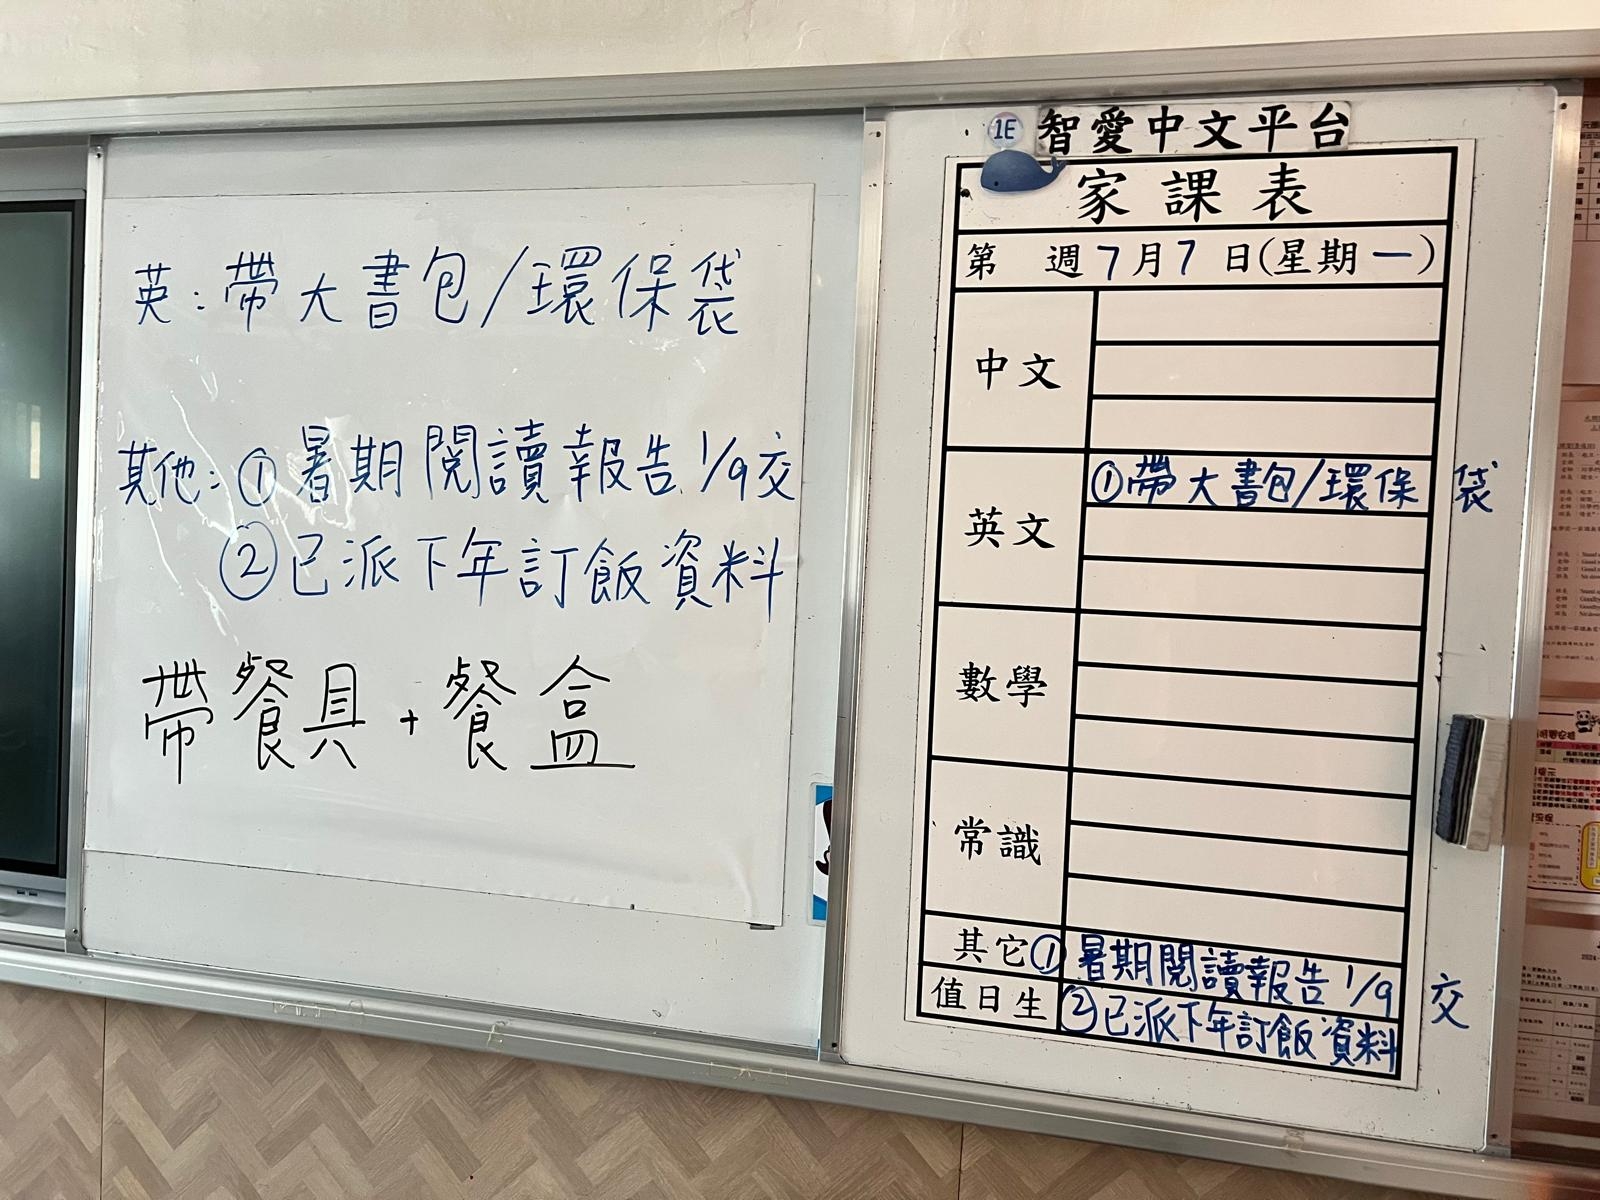 英：帶大書包/環保袋
其他：①暑期閱讀報告 1/9交
②已派下年訂飯資料
帶餐具+餐盒
1E 智愛中文平台
家課表
第 週 7月7日(星期一)
中文
英文 ①帶大書包/環保袋
數學
常識
其它 ①暑期閱讀報告 1/9 交
值日生 ②已派下年訂飯資料